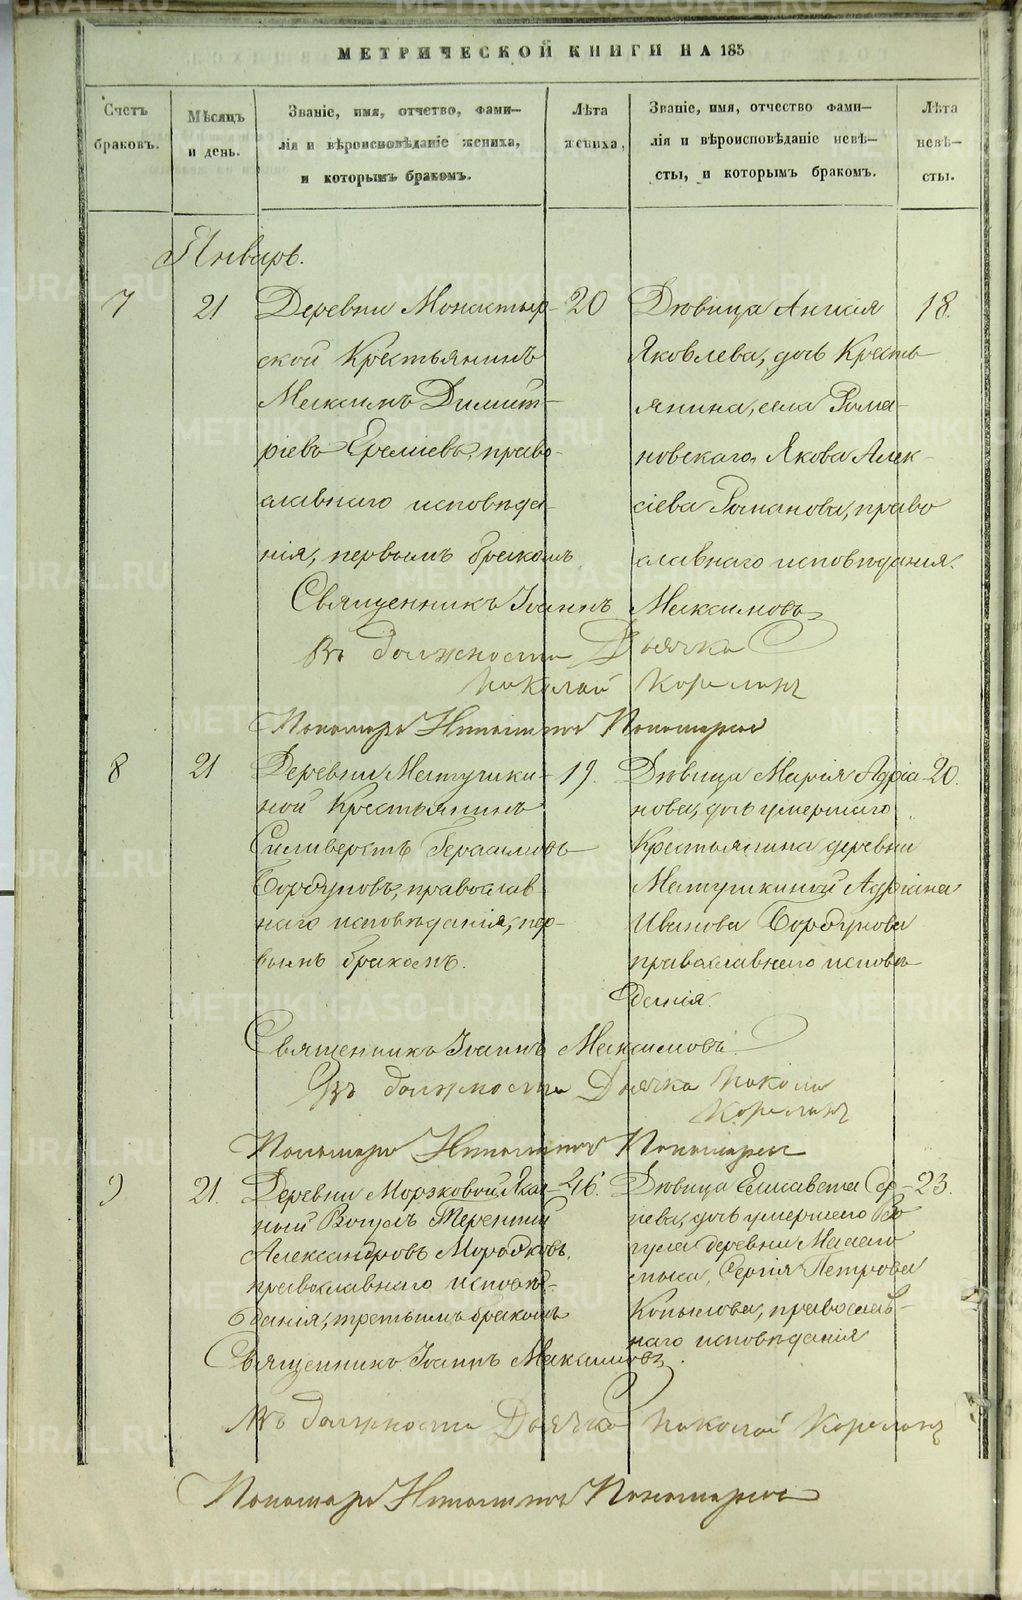 МЕТРИЧЕСКОЙ КНИГИ НА 185
Счетъ браковъ.
Мѣсяцъ и день.
Званіе, имя, отчетво, фами-
лія и вѣроисповѣданіе жениха,
и которымъ бракомъ.
Лѣта жениха.
Званіе, имя, отчество фами-
лія и вѣроисповѣданіе невѣ-
сты, и которымъ бракомъ.
Лѣта невѣ-
сты.
Январь.
7 21 Деревни Монастыр- 20
ской Крестьянинъ
Максимъ Димит-
ріевъ Еремѣевъ, право-
славнаго исповѣда-
нія, первымъ бракомъ
Дѣвица
Яковлева, дочь Кресть
янина, села Рома-
новскаго, Якова Алек-
сіева Романова, право
славнаго исповѣданія.
18.
Священникъ Іоаннъ Максимовъ
Въ должности Дьячка
Николай
Пономарь Пономаревъ
8 21 Деревни Матушки- 19.
ной Крестьянинъ
Сильверстъ Герасимовъ
православ
наго исповѣданія, пер-
вымъ бракомъ.
Дѣвица Марія Адріа- 20.
нова, дочь умершаго
Крестьянина деревни
Матушкиной Адріана
Иванова
православнаго исповѣ
данія.
Священникъ Іоаннъ Максимовъ
Въ должности Дьячка
Пономарь Пономаревъ
9 21 Деревни 46.
Вогулъ Терентій
Александровъ
православнаго исповѣ-
данія, третьимъ бракомъ
Дѣвица Елисавета Сер- 23.
гіева, дочь умершаго Во
гула деревни
Сергія Петрова
Копылова, православ-
наго исповѣданія
Священникъ Іоаннъ Максимовъ.
Въ должности Дьячка Николай
Пономарь Пономаревъ
METRIKI.GASO-URAL.RU